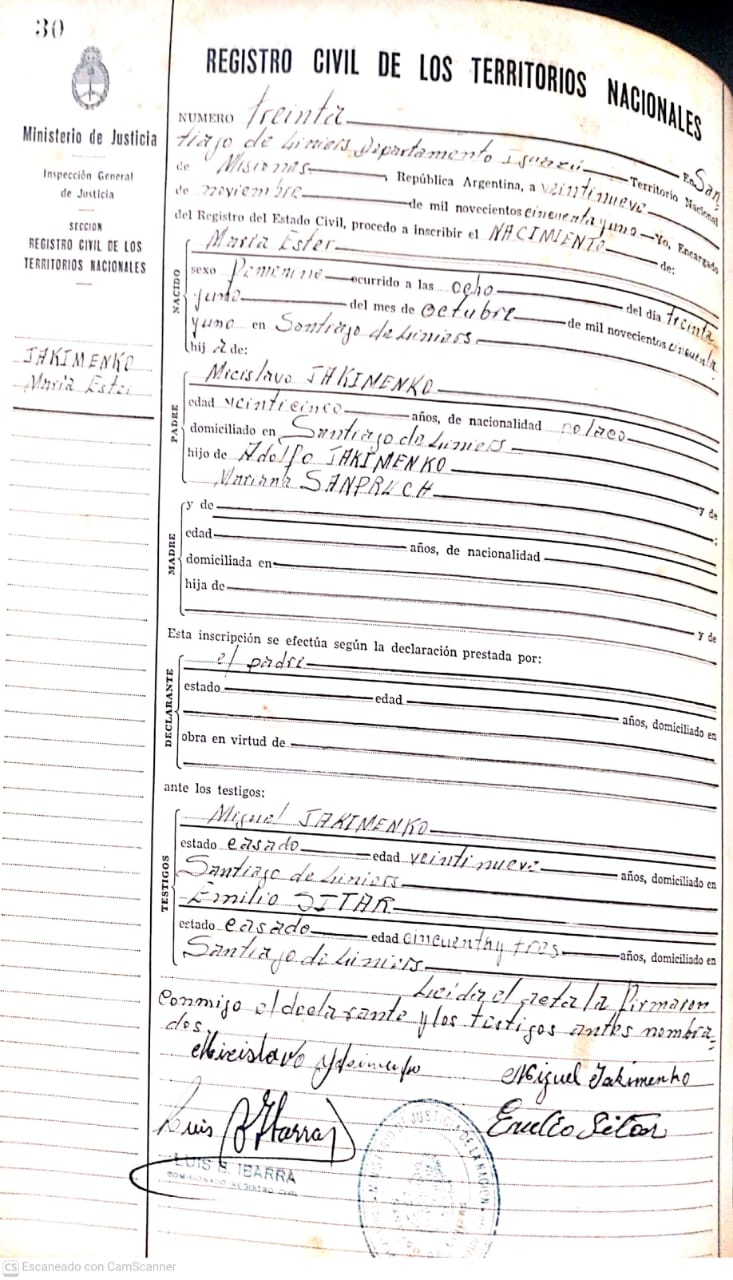 30
Ministerio de Justicia
Inspección General
de Justicia
SECCION
REGISTRO CIVIL DE LOS
TERRITORIOS NACIONALES
JAKIMENKO
Maria Ester
REGISTRO CIVIL DE LOS TERRITORIOS NACIONALES
NUMERO treinta En San
tiago de Liniers Departamento Iguazú Territorio Nacional
de Misiones, República Argentina, a veintinueve
de noviembre de mil novecientos cincuenta y uno Yo, Encargado
del Registro del Estado Civil, procedo a inscribir el NACIMIENTO de:
NACIDO
Maria Ester
sexo Femenino ocurrido a las ocho del día treinta
y uno del mes de Octubre de mil novecientos cincuenta
y uno en Santiago de Liniers
hij a de:
PADRE
Micislavo JAKIMENKO
edad veinticinco años, de nacionalidad polaco
domiciliado en Santiago de Liniers
hijo de Adolfo JAKIMENKO y de
Mariana SANPRUCH ;
MADRE
y de
edad años, de nacionalidad
domiciliada en
hija de y de
Esta inscripción se efectúa según la declaración prestada por:
DECLARANTE
el padre
estado edad años, domiciliado en
obra en virtud de
ante los testigos:
TESTIGOS
Miguel JAKIMENKO
estado casado edad veintinueve años, domiciliado en
Santiago de Liniers
Emilio SITAR
estado casado edad cincuentay tres años, domiciliado en
Santiago de Liniers
Leída el acta la firmaron
conmigo el declarante y los testigos antes nombra-
dos,
Micislavo
Miguel Jakimenko
Luis B Ibarra
Emilio Sitar
LUIS B. IBARRA
COMISIONADO REGISTRO CIVIL
MINISTERIO DE JUSTICIA DE LA NACION
CS Escaneado con CamScanner